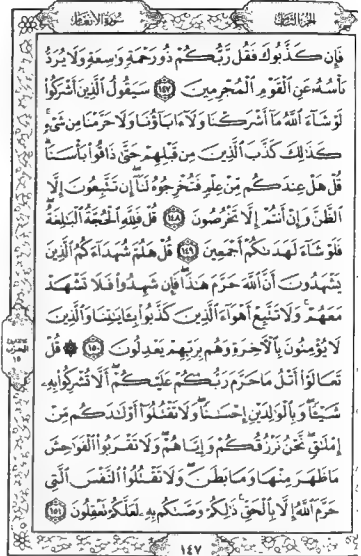 الجزء الثامن
سورة الأنعام
فَإِن كَذَّبُوكَ فَقُل رَّبُّكُمْ ذُو رَحْمَةٍ وَٰسِعَةٍ وَلَا يُرَدُّ
بَأْسُهُۥ عَنِ ٱلْقَوْمِ ٱلْمُجْرِمِينَ ١٤٧ سَيَقُولُ ٱلَّذِينَ أَشْرَكُوا۟
لَوْ شَآءَ ٱللَّهُ مَآ أَشْرَكْنَا وَلَآ ءَابَآؤُنَا وَلَا حَرَّمْنَا مِن شَىْءٍ ۚ
كَذَٰلِكَ كَذَّبَ ٱلَّذِينَ مِن قَبْلِهِمْ حَتَّىٰ ذَاقُوا۟ بَأْسَنَا ۗ
قُلْ هَلْ عِندَكُم مِّنْ عِلْمٍ فَتُخْرِجُوهُ لَنَآ ۖ إِن تَتَّبِعُونَ إِلَّا
ٱلظَّنَّ وَإِنْ أَنتُمْ إِلَّا تَخْرُصُونَ ١٤٨ قُلْ فَلِلَّهِ ٱلْحُجَّةُ ٱلْبَٰلِغَةُ ۖ
فَلَوْ شَآءَ لَهَدَىٰكُمْ أَجْمَعِينَ ١٤٩ قُلْ هَلُمَّ شُهَدَآءَكُمُ ٱلَّذِينَ
يَشْهَدُونَ أَنَّ ٱللَّهَ حَرَّمَ هَٰذَا ۖ فَإِن شَهِدُوا۟ فَلَا تَشْهَدْ
مَعَهُمْ ۚ وَلَا تَتَّبِعْ أَهْوَآءَ ٱلَّذِينَ كَذَّبُوا۟ بِـَٔايَٰتِنَا وَٱلَّذِينَ
لَا يُؤْمِنُونَ بِٱلْـَٔاخِرَةِ وَهُم بِرَبِّهِمْ يَعْدِلُونَ ١٥٠ ۞ قُلْ
تَعَالَوْا۟ أَتْلُ مَا حَرَّمَ رَبُّكُمْ عَلَيْكُمْ ۖ أَلَّا تُشْرِكُوا۟ بِهِۦ
شَيْـًٔا ۖ وَبِٱلْوَٰلِدَيْنِ إِحْسَٰنًا ۖ وَلَا تَقْتُلُوٓا۟ أَوْلَٰدَكُم مِّنْ
إِمْلَٰقٍ ۖ نَّحْنُ نَرْزُقُكُمْ وَإِيَّاهُمْ ۖ وَلَا تَقْرَبُوا۟ ٱلْفَوَٰحِشَ
مَا ظَهَرَ مِنْهَا وَمَا بَطَنَ ۖ وَلَا تَقْتُلُوا۟ ٱلنَّفْسَ ٱلَّتِى
حَرَّمَ ٱللَّهُ إِلَّا بِٱلْحَقِّ ۚ ذَٰلِكُمْ وَصَّىٰكُم بِهِۦ لَعَلَّكُمْ تَعْقِلُونَ ١٥١
١٤٧